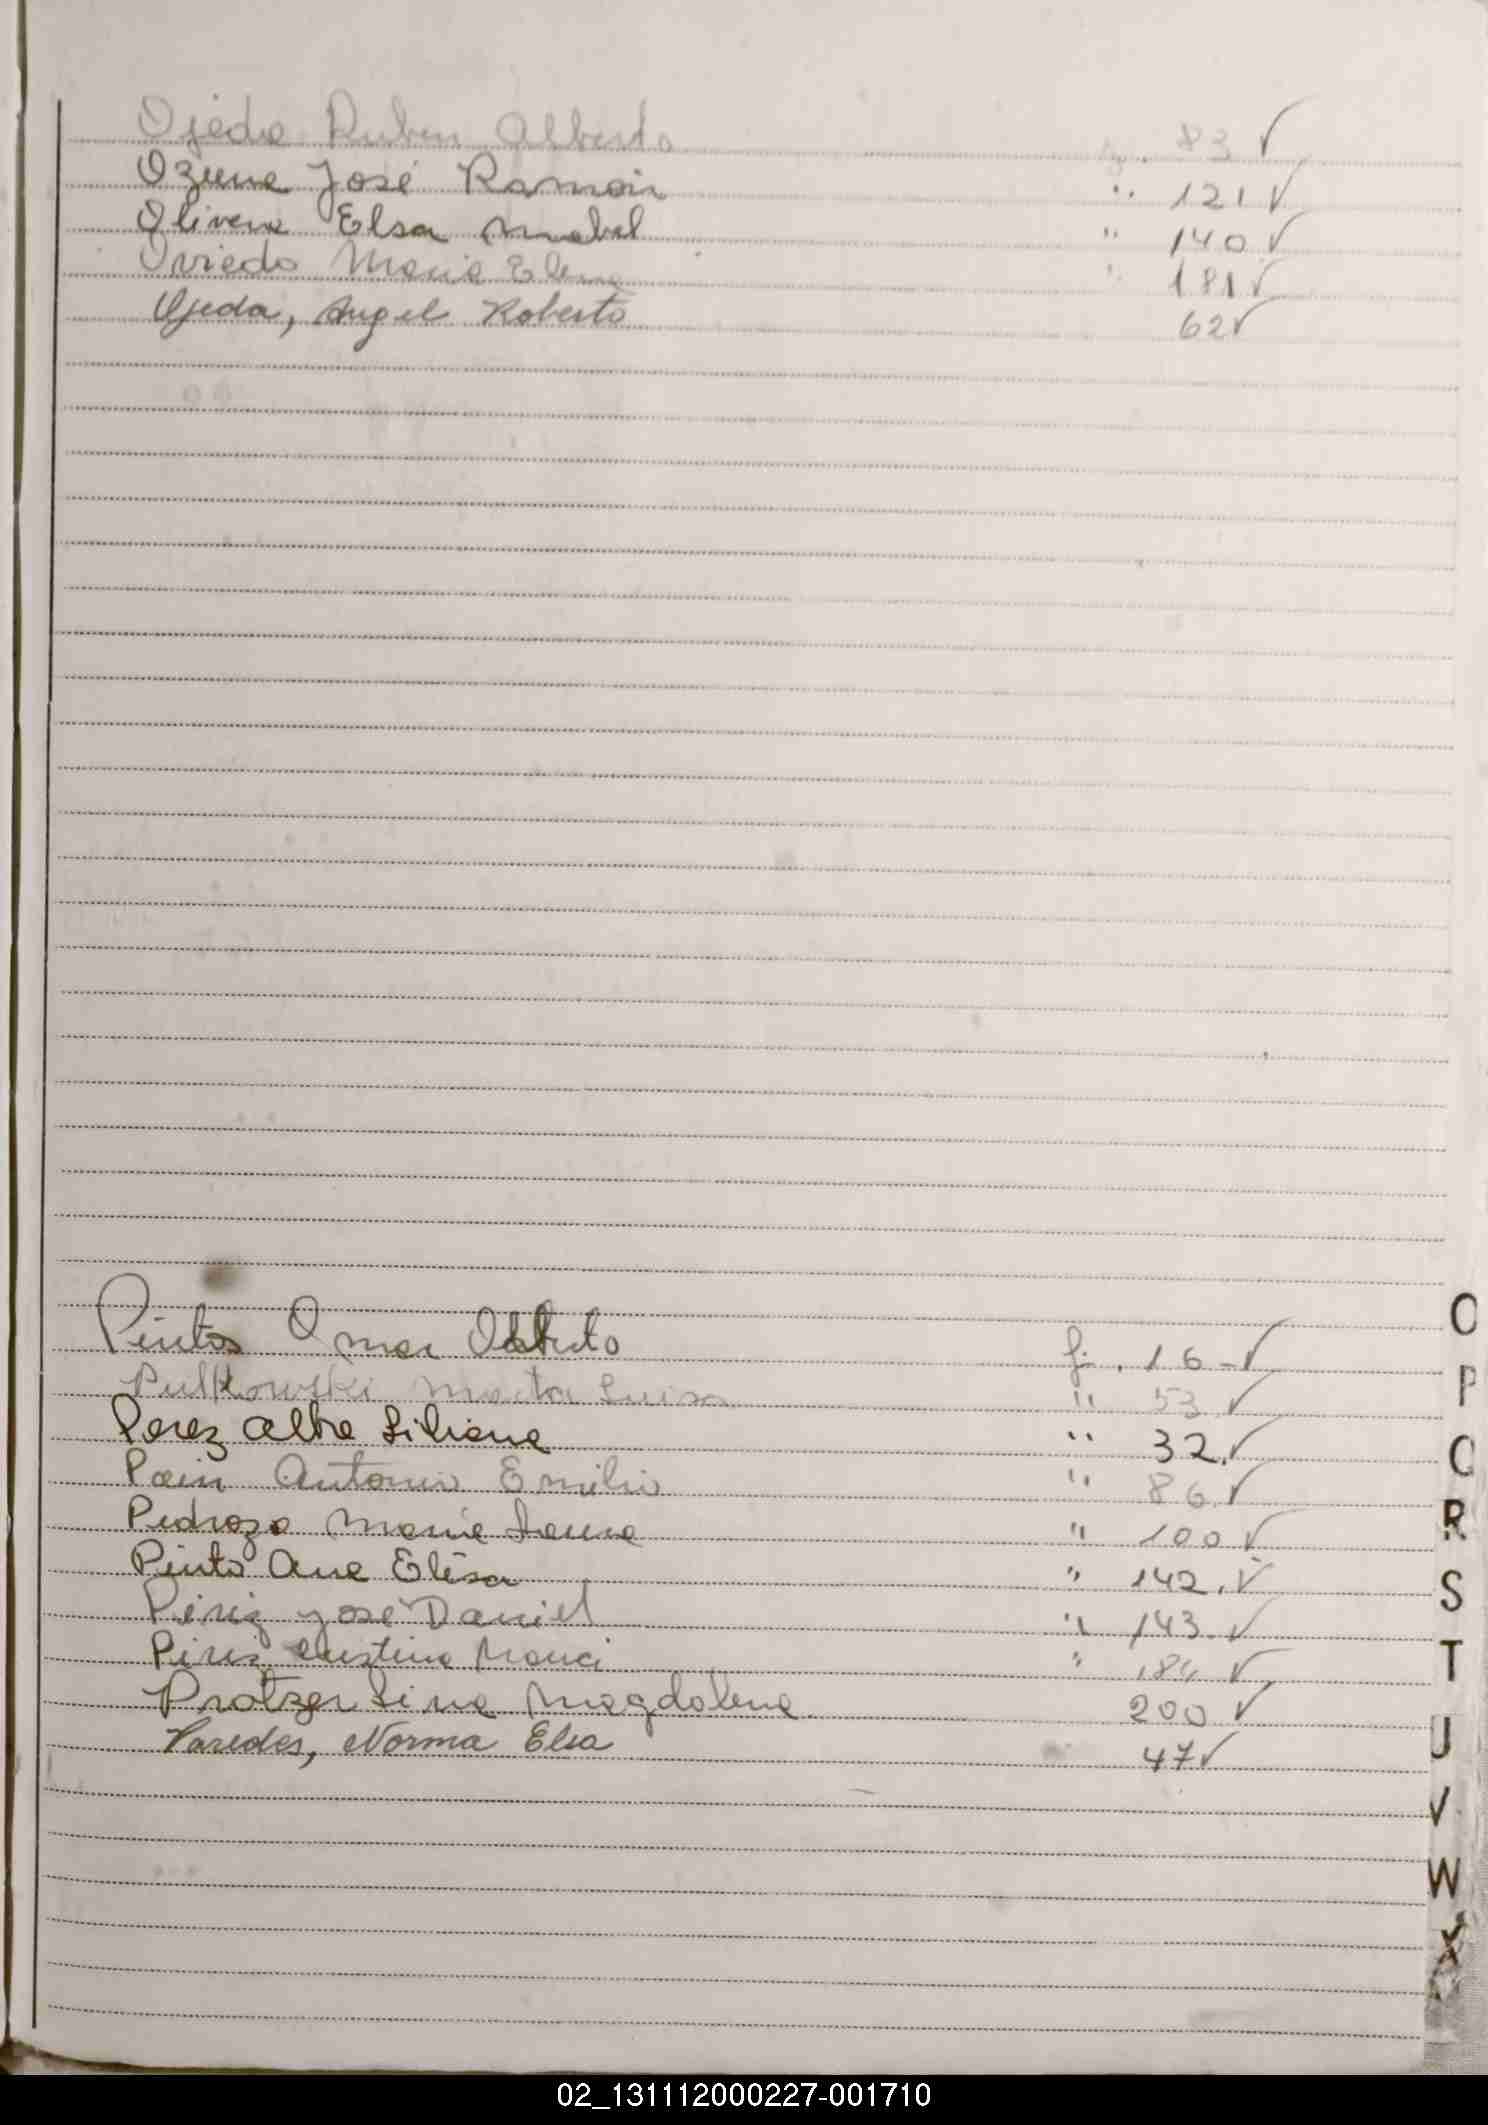 Ojeda Ruben Alberto fo. 83 ✓
Ozuna José Ramón " 121 ✓
Olivera Elsa Mabel " 140 ✓
Oviedo Maria Elena " 181 ✓
Ojeda, Angel Roberto 62 ✓
Pintos Omar Alberto fo. 16 - ✓
Pulkowski Marta Luisa " 53 ✓
Perez Alba Liliana " 32. ✓
Pain Antonio Emilio " 86. ✓
Pedrozo Maria Laura " 100 ✓
Pinto Ana Elisa " 142. ✓
Pérez José Daniel " 143. ✓
Cristina " ✓
Protzer Lina Magdalena 200 ✓
Paredes, Norma Elsa 47 ✓
O
P
Q
R
S
T
U
V
W
X
02_131112000227-001710